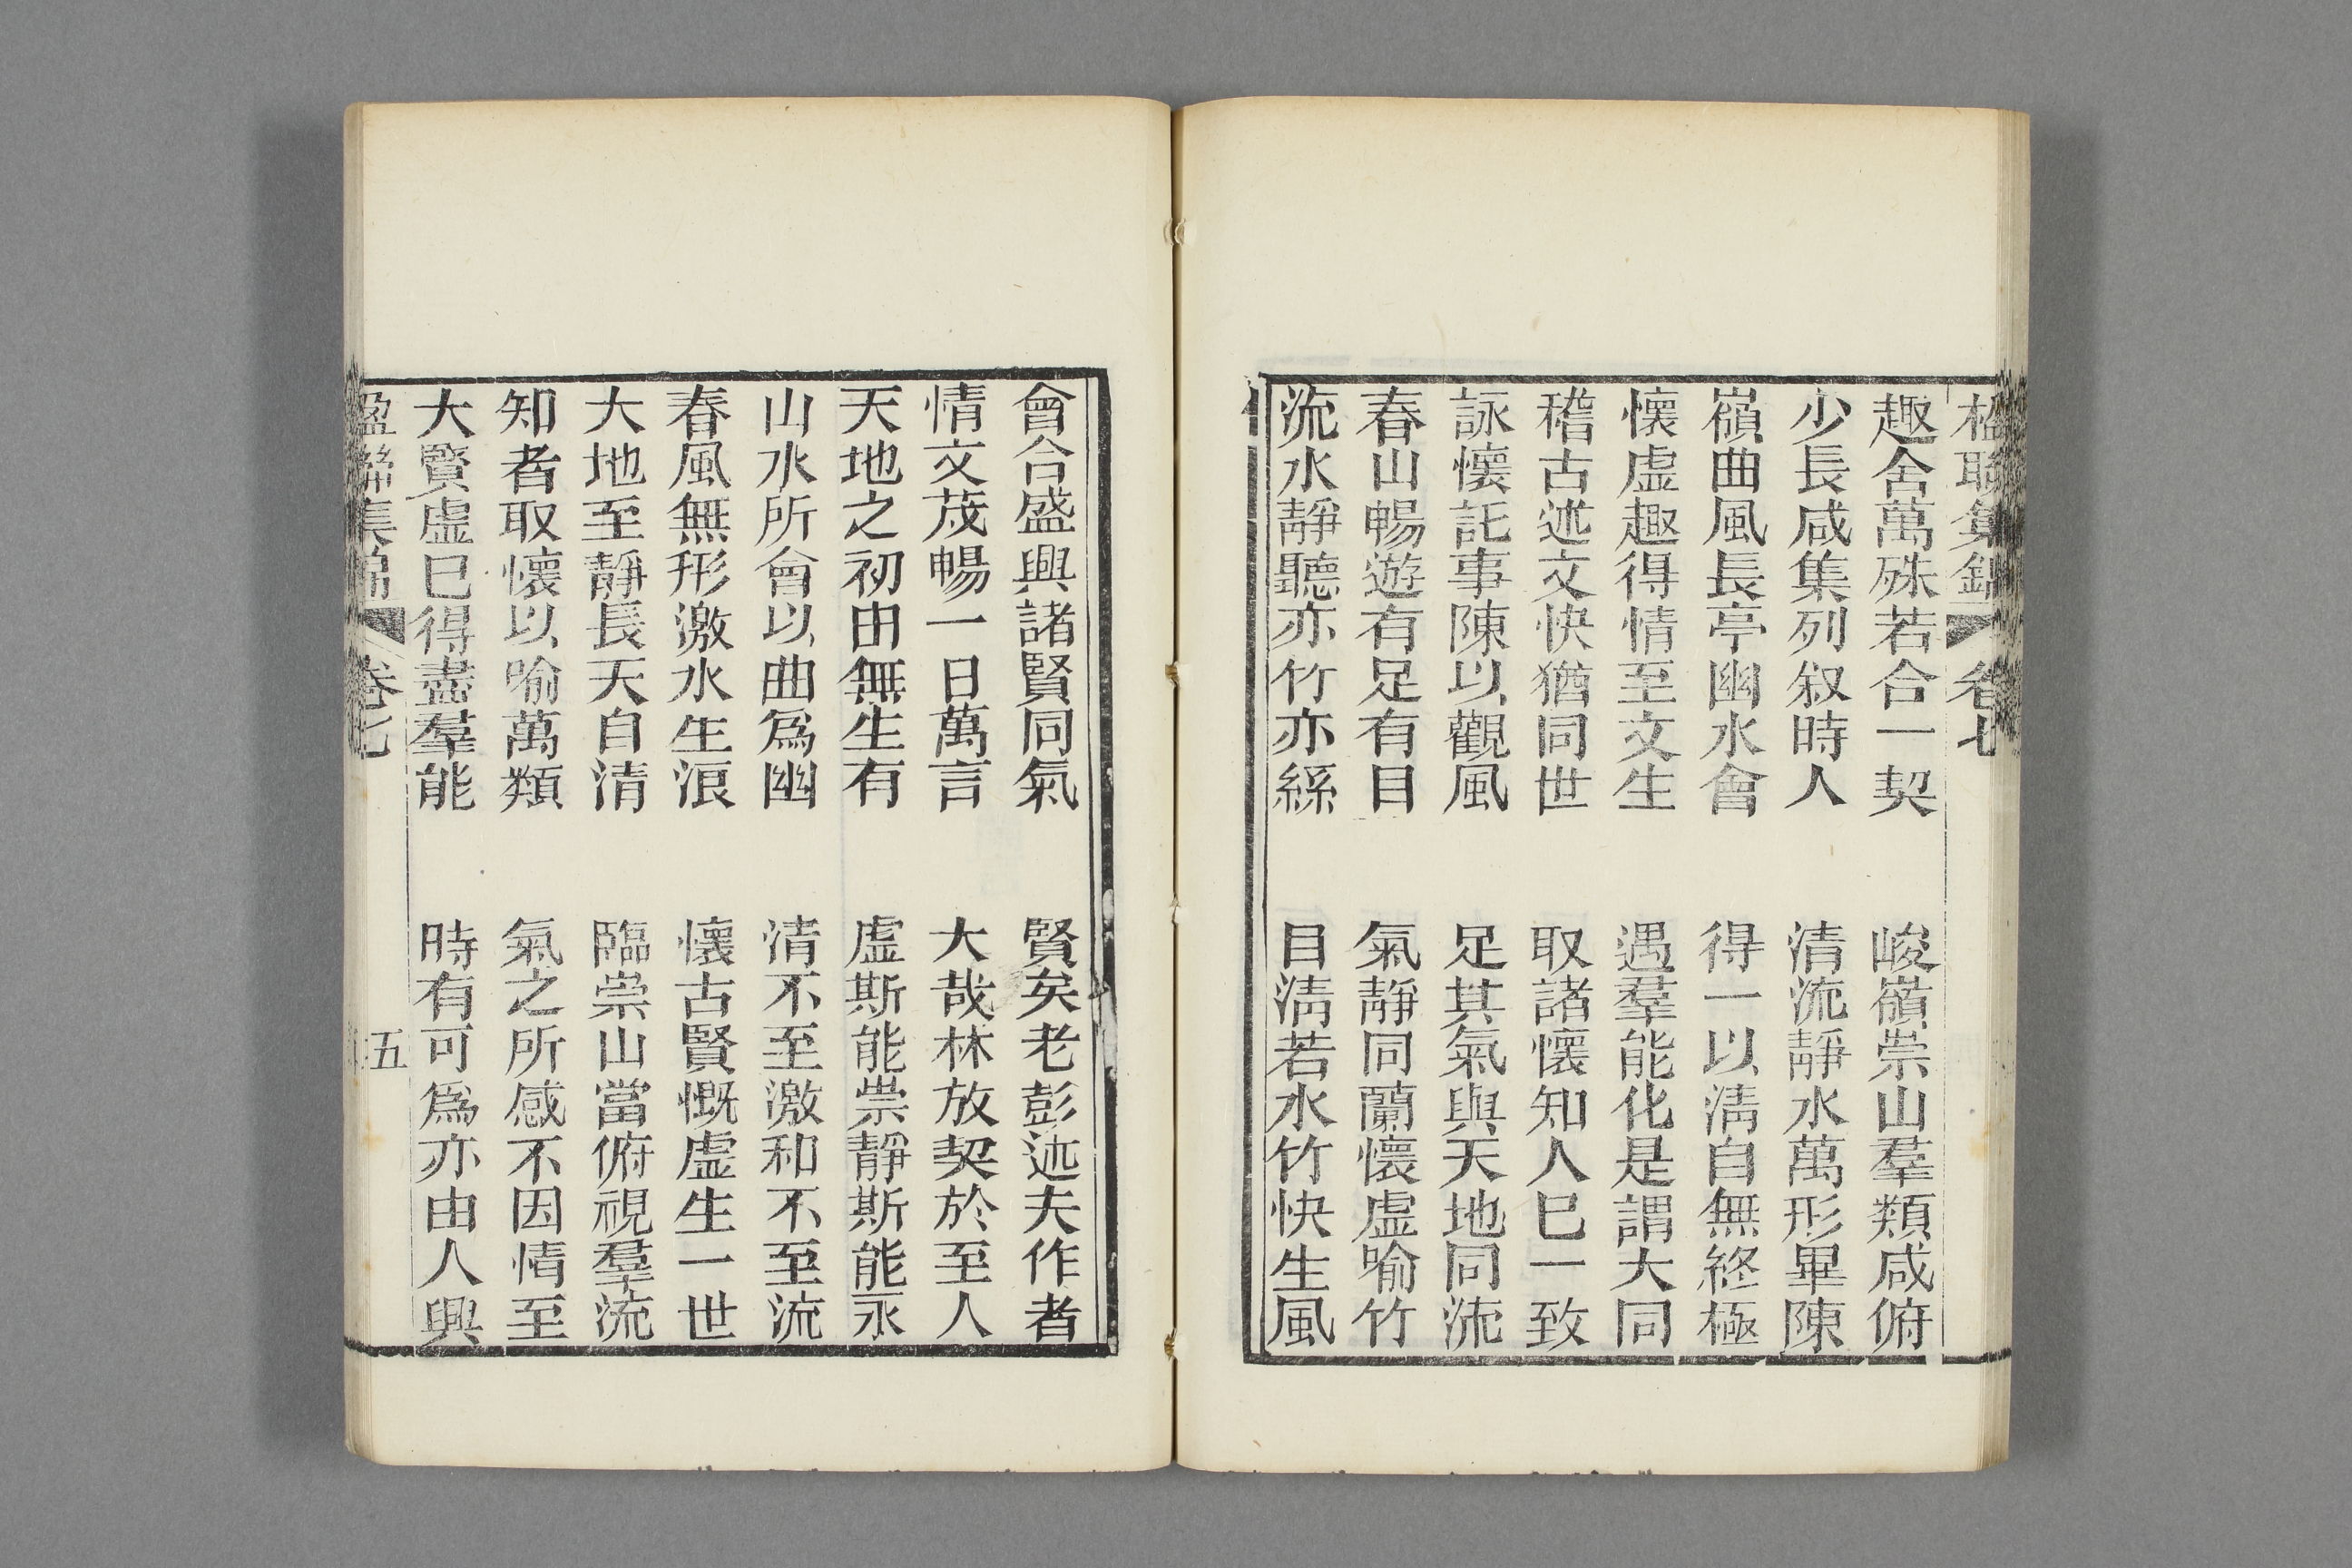 楹聯集錦 卷七
趣舍萬殊若合一契 峻嶺崇山羣類咸俯
少長咸集列叙時人 清流靜水萬形畢陳
嶺曲風長亭幽水會 得一以清自無終極
懷虛趣得情至文生 遇羣能化是謂大同
稽古述文快猶同世 取諸懷知人已一致
詠懷託事陳以觀風 足其氣與天地同流
春山暢遊有足有目 氣靜同蘭懷虛喻竹
流水靜聽亦竹亦絲 目清若水竹快生風
會合盛興諸賢同氣 賢矣老彭述夫作者
情文茂暢一日萬言 大哉林放契於至人
天地之初由無生有 虛斯能崇靜斯能永
山水所會以曲爲幽 清不至激和不至流
春風無形激水生浪 懷古賢慨虛生一世
大地至靜長天自清 臨崇山當俯視羣流
知者取懷以喻萬類 氣之所感不因情至
大賢虛已得盡羣能 時有可爲亦由人興
楹聯集錦 卷七 五